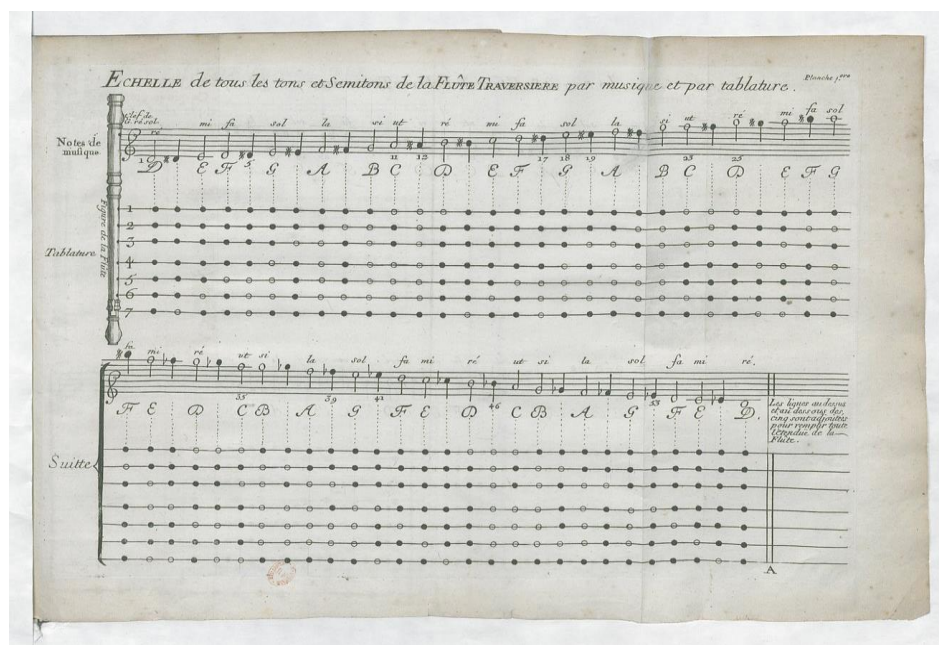 Planche 1.ere
ECHELLE de tous les tons et Semitons de la FLÛTE TRAVERSIERE par musique et par tablature.
Clef de
G. ré sol
ré mi fa sol la si ut ré mi fa sol la si ut ré mi fa sol
Notes de
musique
1 5 11 12 17 18 19 23 25
D E F G A B C D E F G A B C D E F G
Figure de la Flûte
Tablature
1
2
3
4
5
6
7
fa mi ré ut si la sol fa mi ré ut si la sol fa mi ré.
35 39 41 46 53
F E D C B A G F E D C B A G F E D.
Les lignes au dessus
et au dessous des
cinq sont adjoutées
pour remplir toute
l'étendue de la
Flûte.
Suitte
A